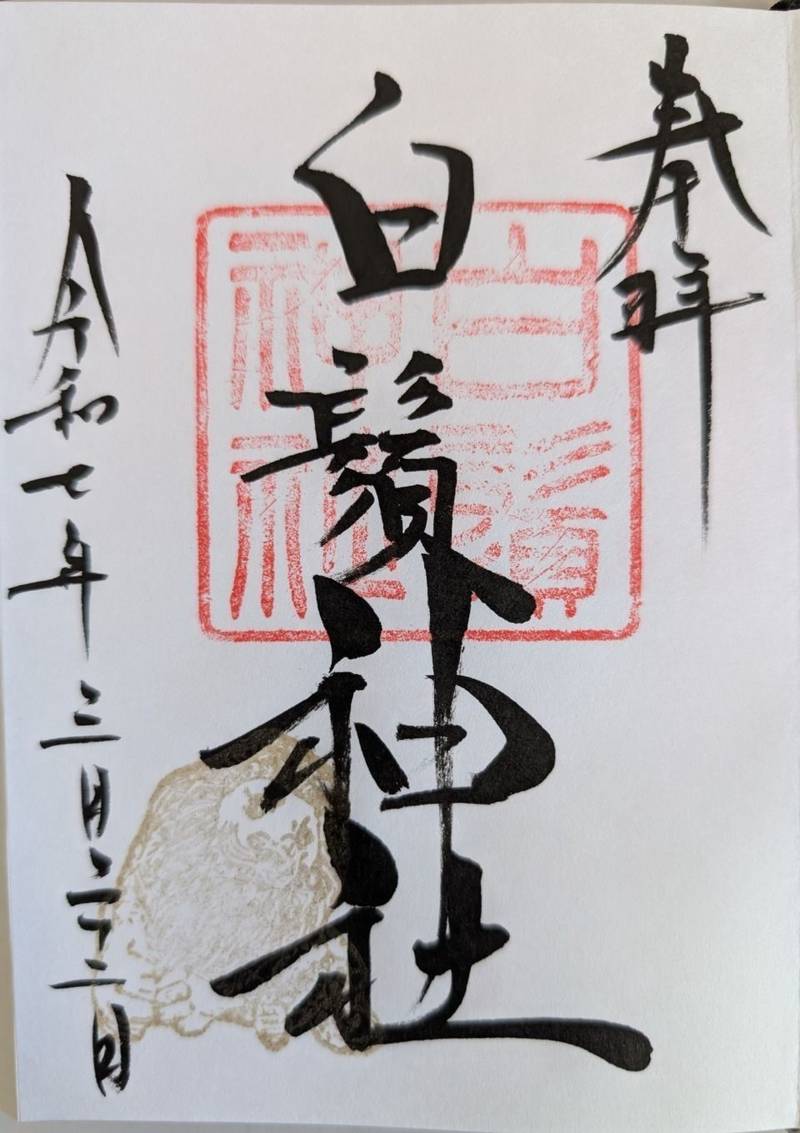 奉拝
白鬚神社
白鬚
神社
令和七年三月二十二日